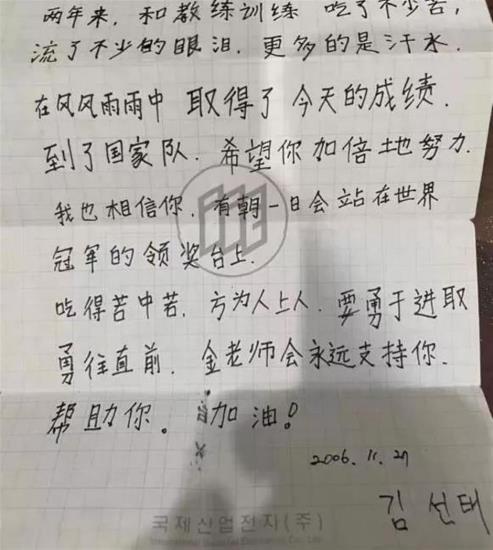 两年来，和教练训练 吃了不少苦，
流了不少的眼泪，更多的是汗水．
在风风雨雨中 取得了 今天的成绩．
到了国家队．希望你加倍地努力．
我也相信你．有朝一日会站在世界
冠军的领奖台上．
吃得苦中苦，方为人上人．要勇于进取
勇往直前．金老师会永远支持你．
帮助你。 加油！
2006. 11. 27
김 선태
국제산업전자(주)